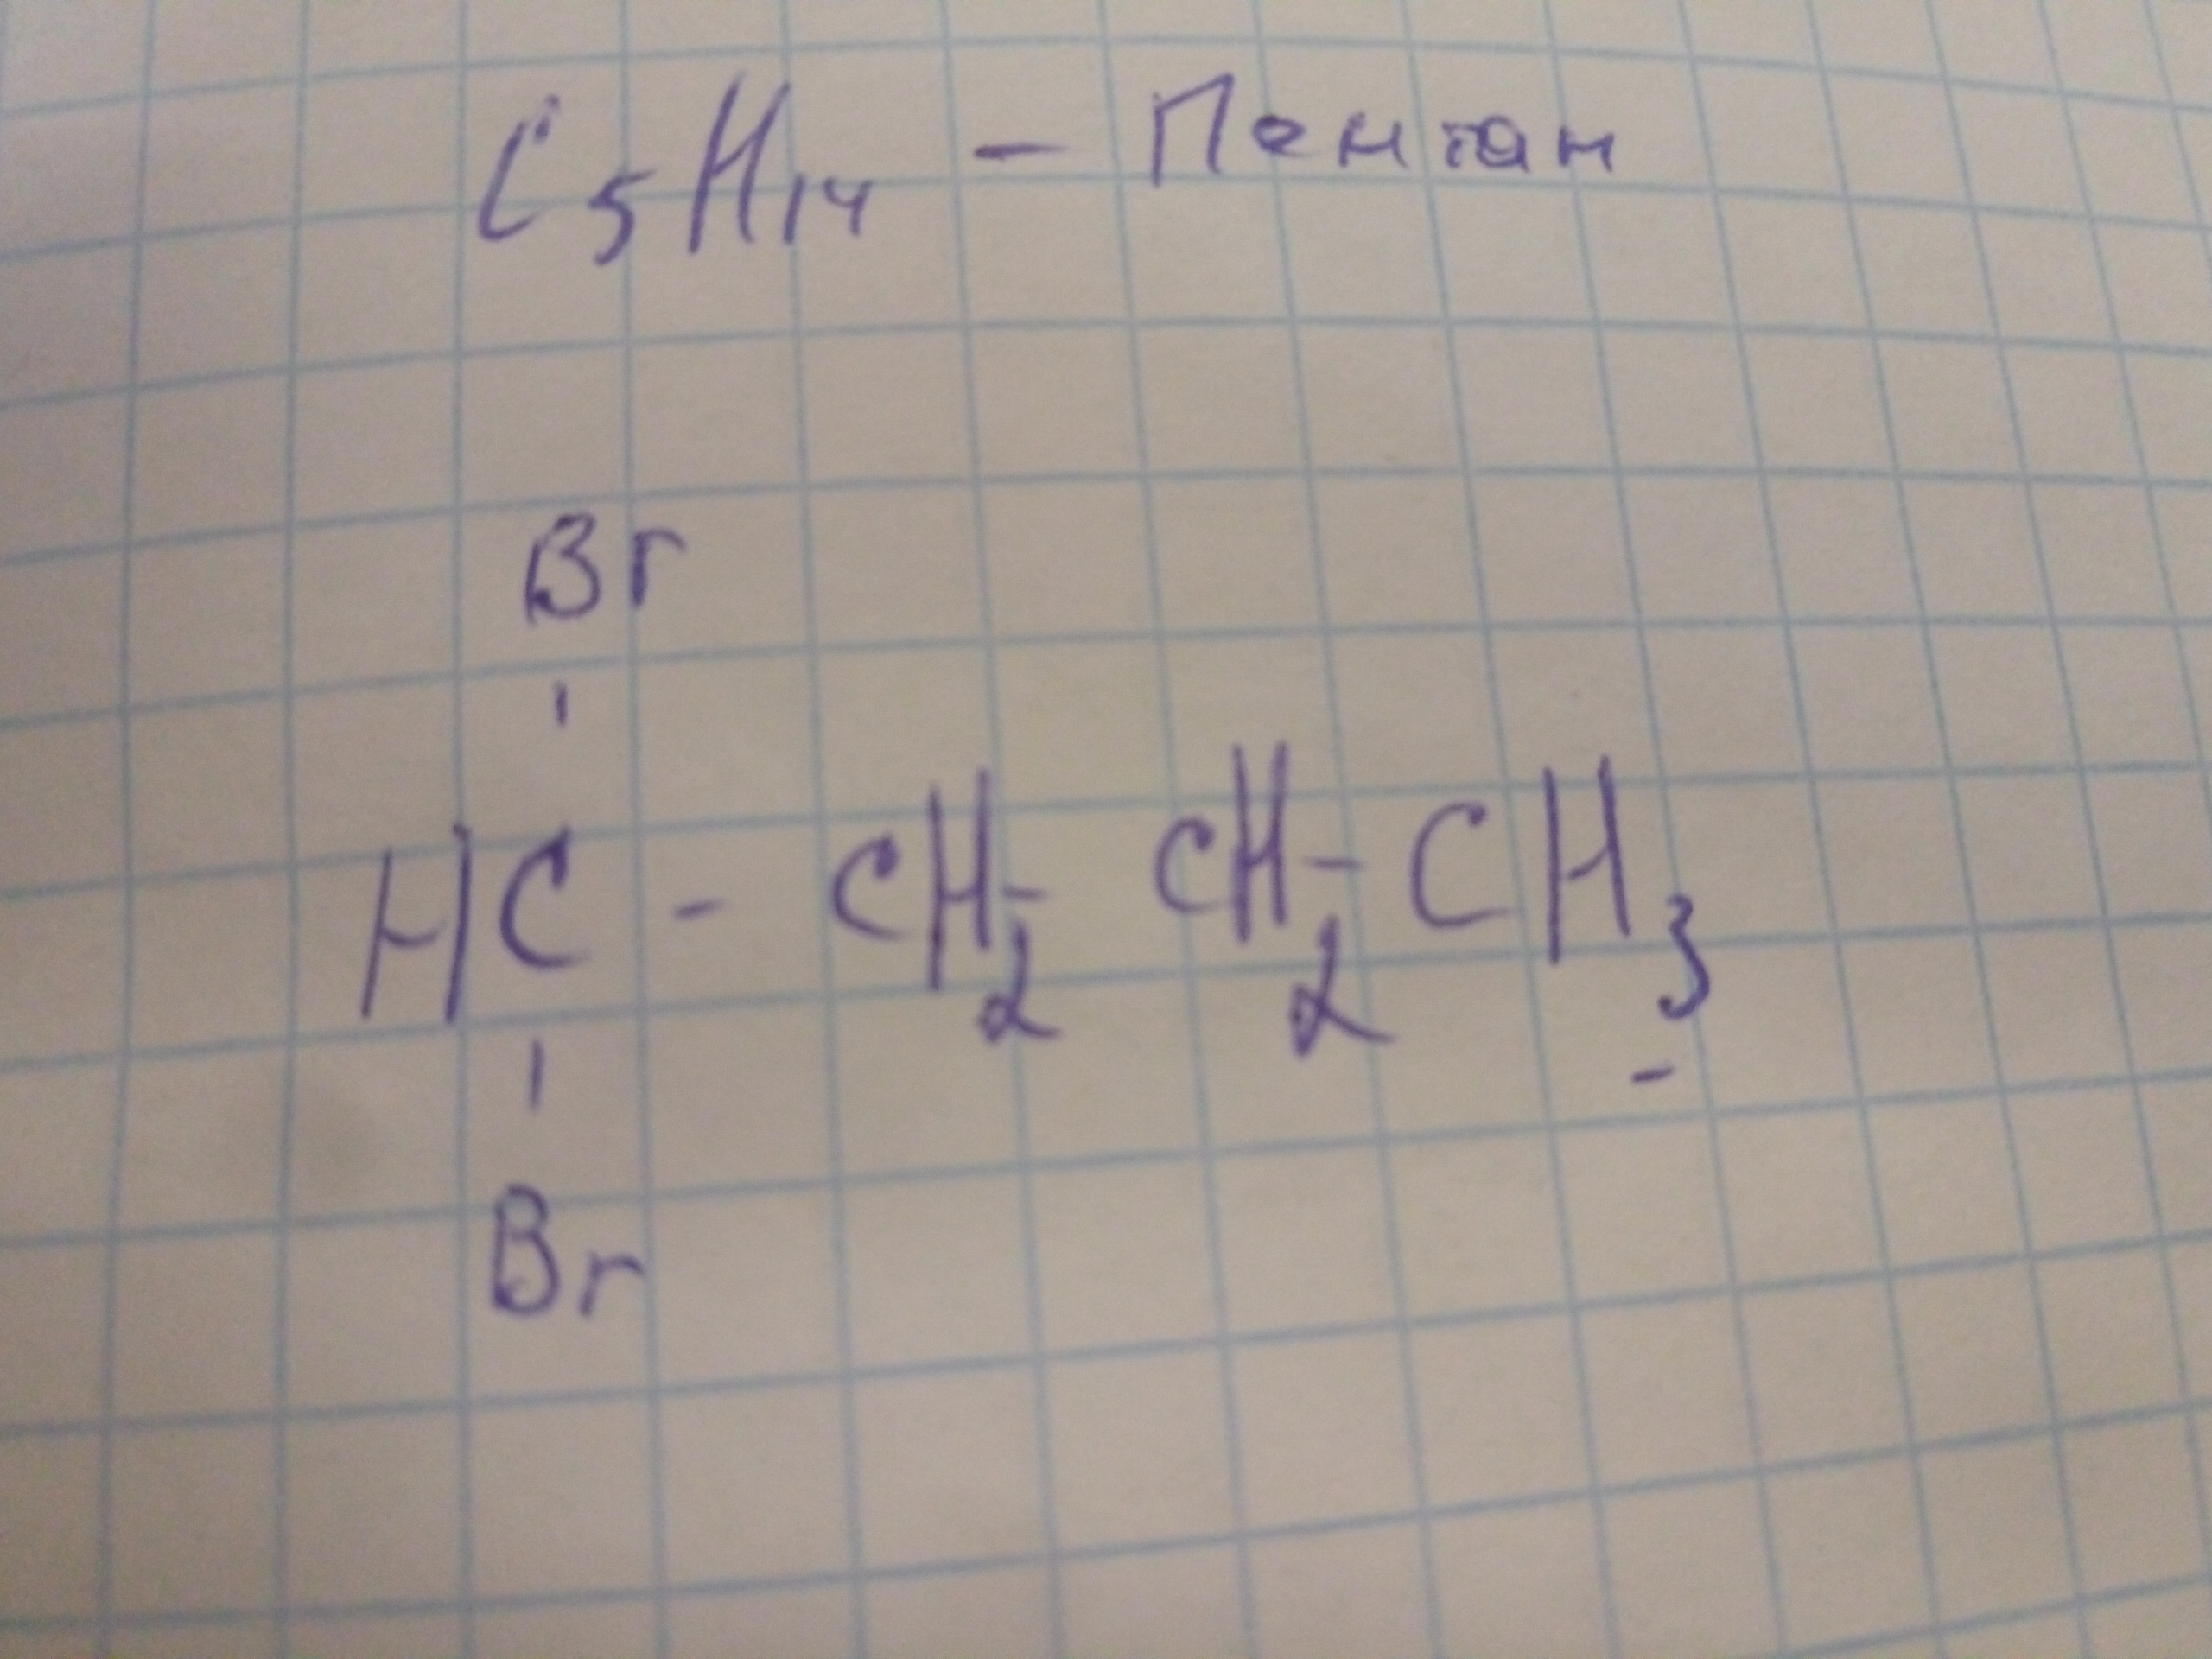 C₅H₁₄ — Пентан
Br
HC - CH₂- CH₂- CH₃
Br